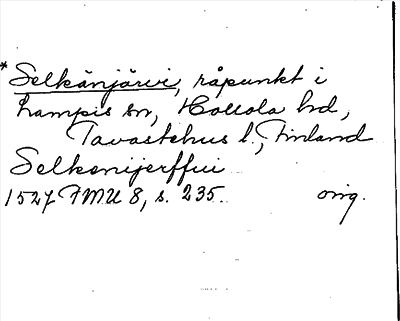 *Selkänjärvi, råpunkt i
Lampis sn, Hollola hd,
Tavastehus l., Finland
Selkenijerffui
1527 FMU 8, s. 235. orig.